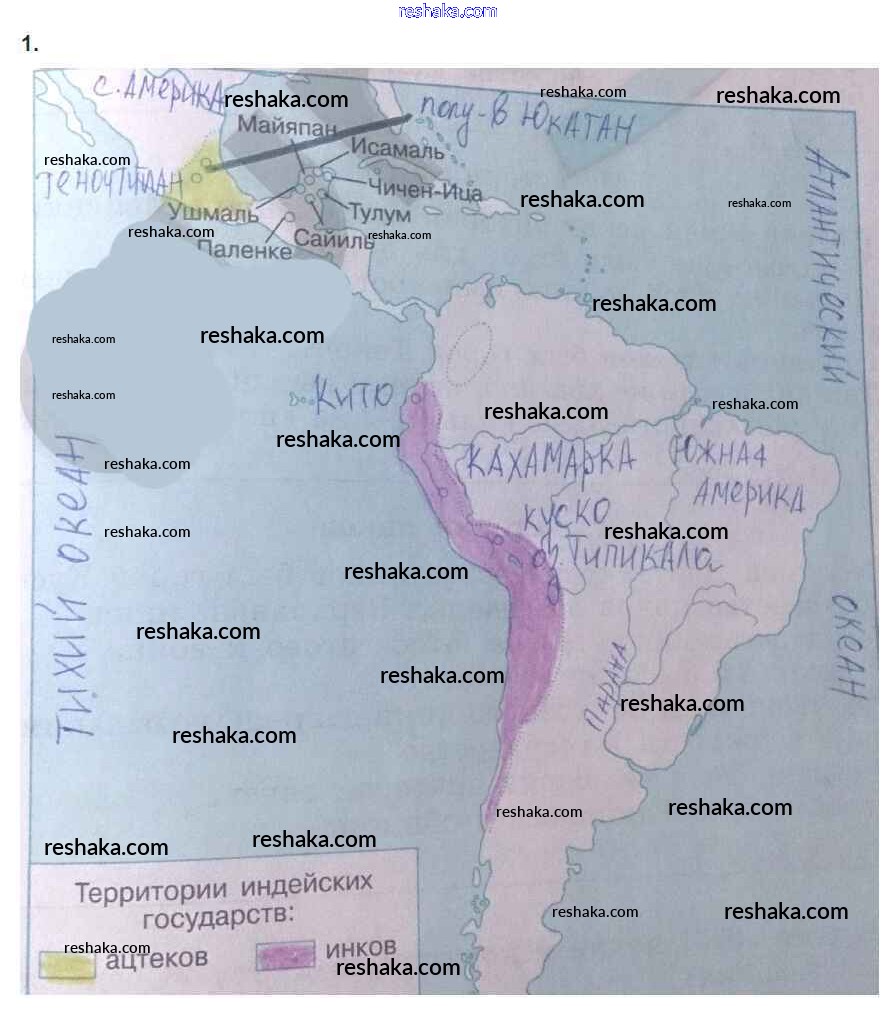 reshaka.com
1.
С. АМЕРИКА
reshaka.com
reshaka.com
reshaka.com
Майяпан
полу-в ЮКАТАН
Исамаль
reshaka.com
ТЕНОЧТИТЛАН
Чичен-Ица
reshaka.com
reshaka.com
Ушмаль
Тулум
reshaka.com
Сайиль
reshaka.com
Паленке
АТЛАНТИЧЕСКИЙ
reshaka.com
reshaka.com
reshaka.com
reshaka.com
КИТО
reshaka.com
reshaka.com
reshaka.com
reshaka.com
КАХАМАРКА
ЮЖНАЯ
АМЕРИКА
ТИХИЙ ОКЕАН
КУСКО
reshaka.com
reshaka.com
оз. ТИПИКАЛа
reshaka.com
ОКЕАН
reshaka.com
ПАРАНА
reshaka.com
reshaka.com
reshaka.com
reshaka.com
reshaka.com
reshaka.com
reshaka.com
Территории индейских
государств:
reshaka.com
reshaka.com
reshaka.com
ацтеков
инков
reshaka.com